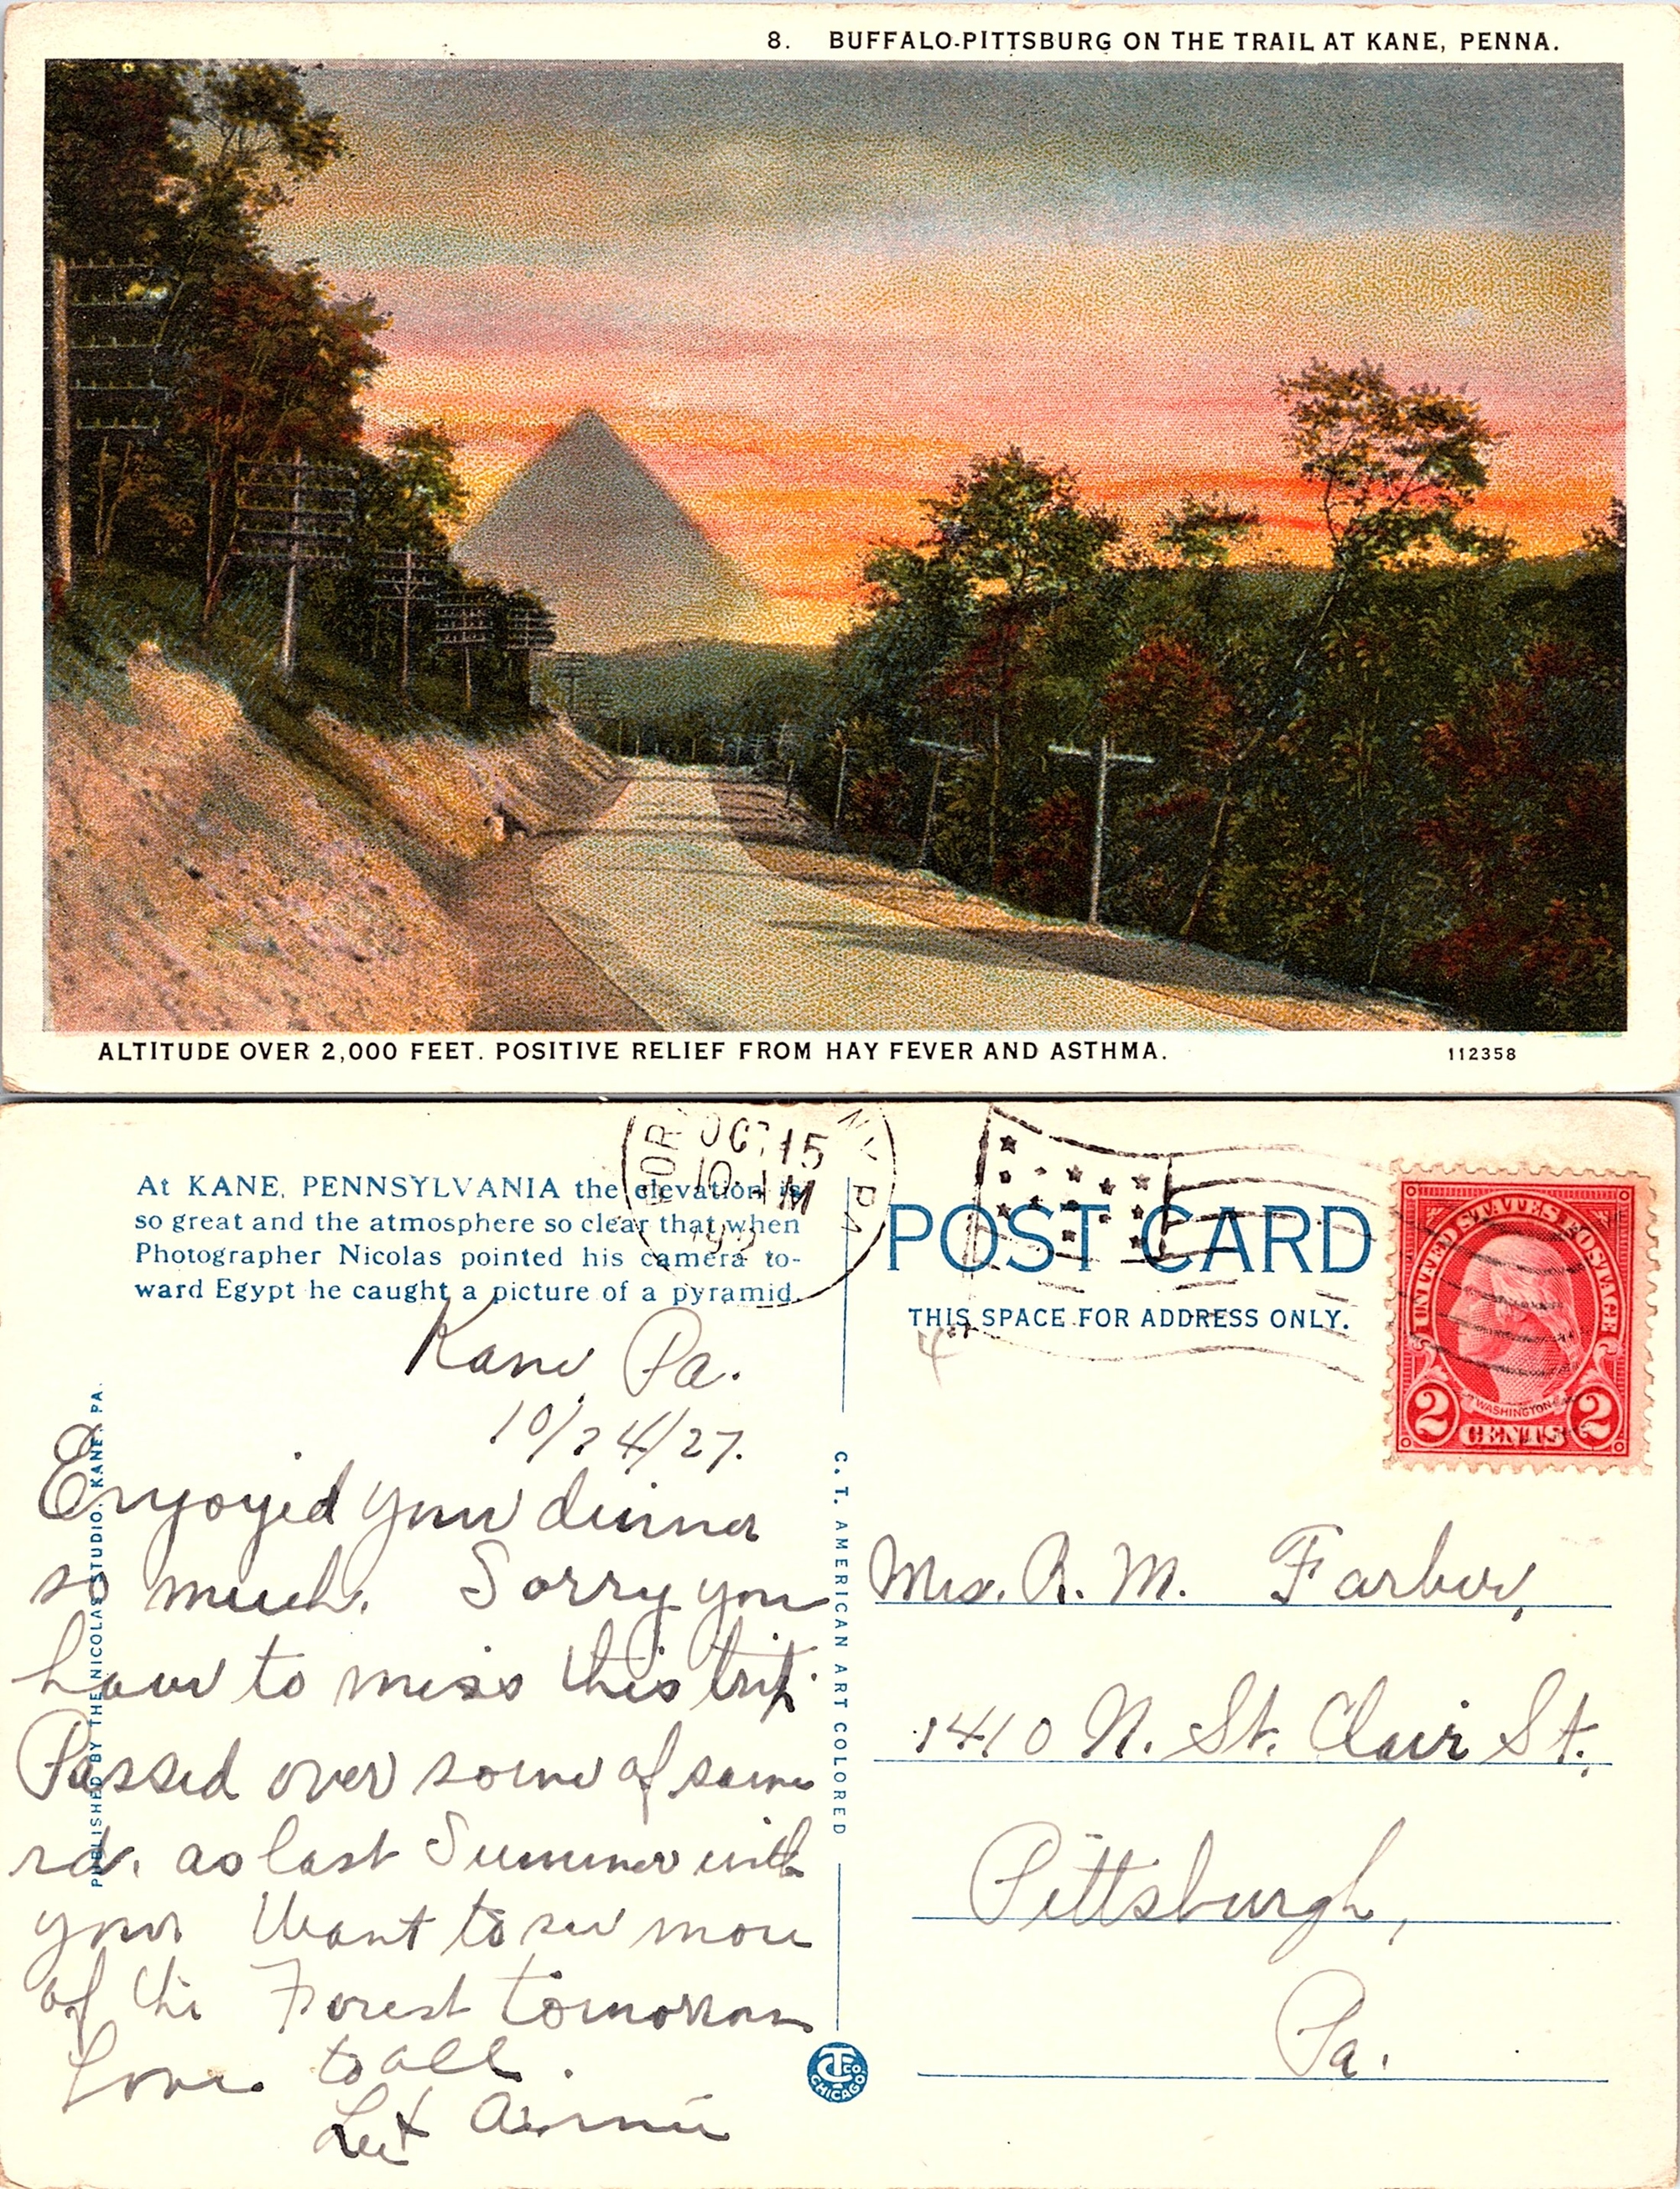 8. BUFFALO-PITTSBURG ON THE TRAIL AT KANE, PENNA.
ALTITUDE OVER 2,000 FEET. POSITIVE RELIEF FROM HAY FEVER AND ASTHMA.
112358
At KANE, PENNSYLVANIA the elevation is
so great and the atmosphere so clear that when
Photographer Nicolas pointed his camera to-
ward Egypt he caught a picture of a pyramid.
OCT 15
M
PA
POST CARD
THIS SPACE FOR ADDRESS ONLY.
UNITED STATES POSTAGE
WASHINGTON
2 CENTS 2
Kane, Pa.
10/ /27.
Enjoyed your dinner
so much. Sorry you
have to miss this trip.
Passed over some of same
rd. as last Summer with
you. Want to see more
of the Forest tomorrow
Love to all.
PUBLISHED BY THE NICOLAS STUDIO, KANE, PA.
C. T. AMERICAN ART COLORED
CT CO. CHICAGO
Mrs. R. M. Farber,
1410 N. St. Clair St.,
Pittsburgh,
Pa.